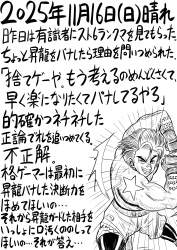 2025年11月16日(日)晴れ
昨日は有識者にストランクマを見てもらった。
ちょっと昇龍をバナしたら理由を問いつめられた。
「捨てゲーや。もう考えるのめんどくさくて、
早く楽になりたくてバナしてるやろ」
的確かつネチネチした
正論でオレを追いつめてくる。
不正解。
格ゲーマーは最初に
昇龍バナした決断力を
ほめてほしいの…
それから昇龍ガードした相手を
いっしょに口汚くののしって
ほしいの…それが答え…